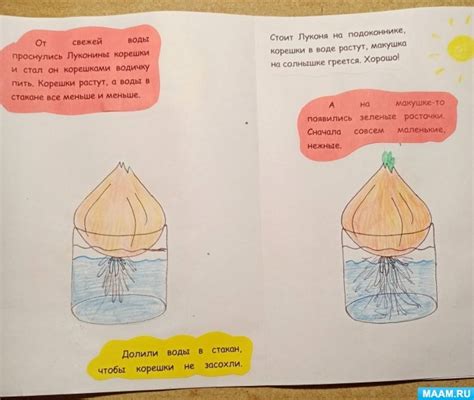 От свежей воды
проснулись Луконины корешки
и стал он корешками водичку
пить. Корешки растут, а воды в
стакане все меньше и меньше.
Долили воды в стакан,
чтобы корешки не засохли.
Стоит Луконя на подоконнике,
корешки в воде растут, макушка
на солнышке греется. Хорошо!
А на макушке-то
появились зеленые росточки.
Сначала совсем маленькие,
нежные.
MAAM.RU